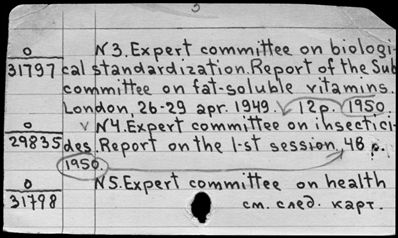 5
0 N3. Expert committee on biologi-
31797 cal standardization. Report of the Sub
committee on fat-soluble vitamins.
London, 26-29 apr. 1949. 12p. 1950.
0 N4. Expert committee on insectici-
29835 des. Report on the 1-st session. 48 p.
1950.
0 N5. Expert committee on health
31798 см. след. карт.